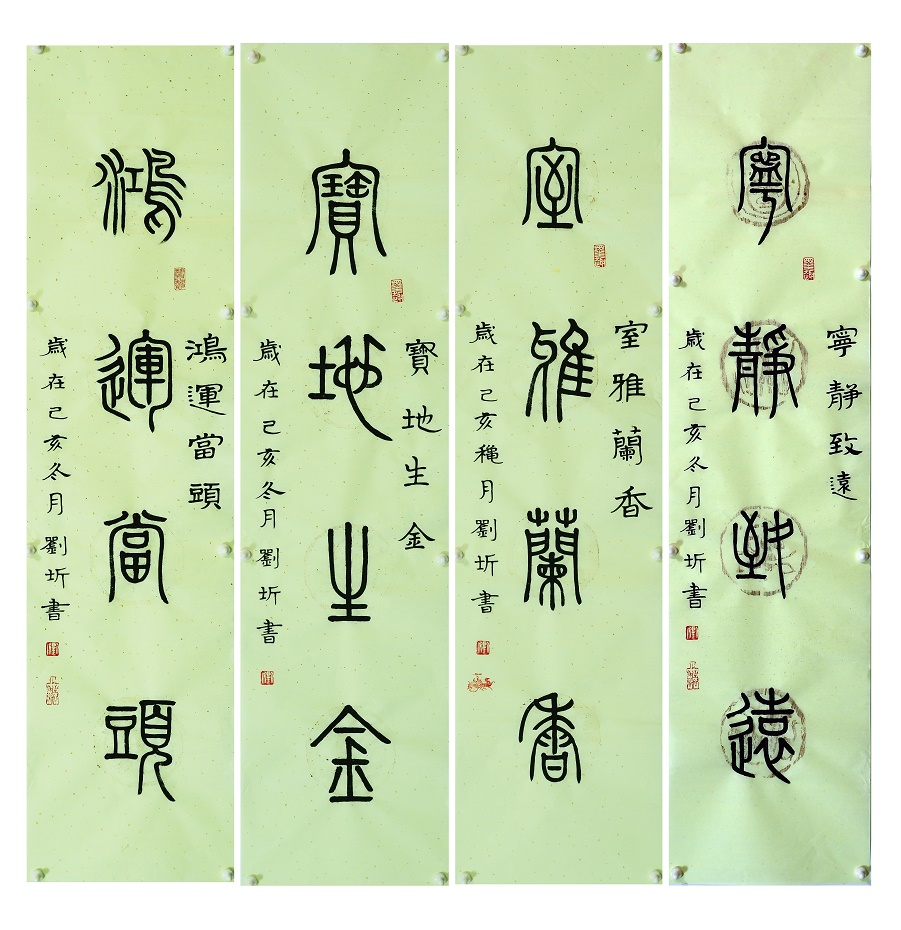 寧靜致遠
寧靜致遠
歲在己亥冬月劉圻書
室雅蘭香
室雅蘭香
歲在己亥穐月劉圻書
寶地生金
寶地生金
歲在己亥冬月劉圻書
鴻運當頭
鴻運當頭
歲在己亥冬月劉圻書